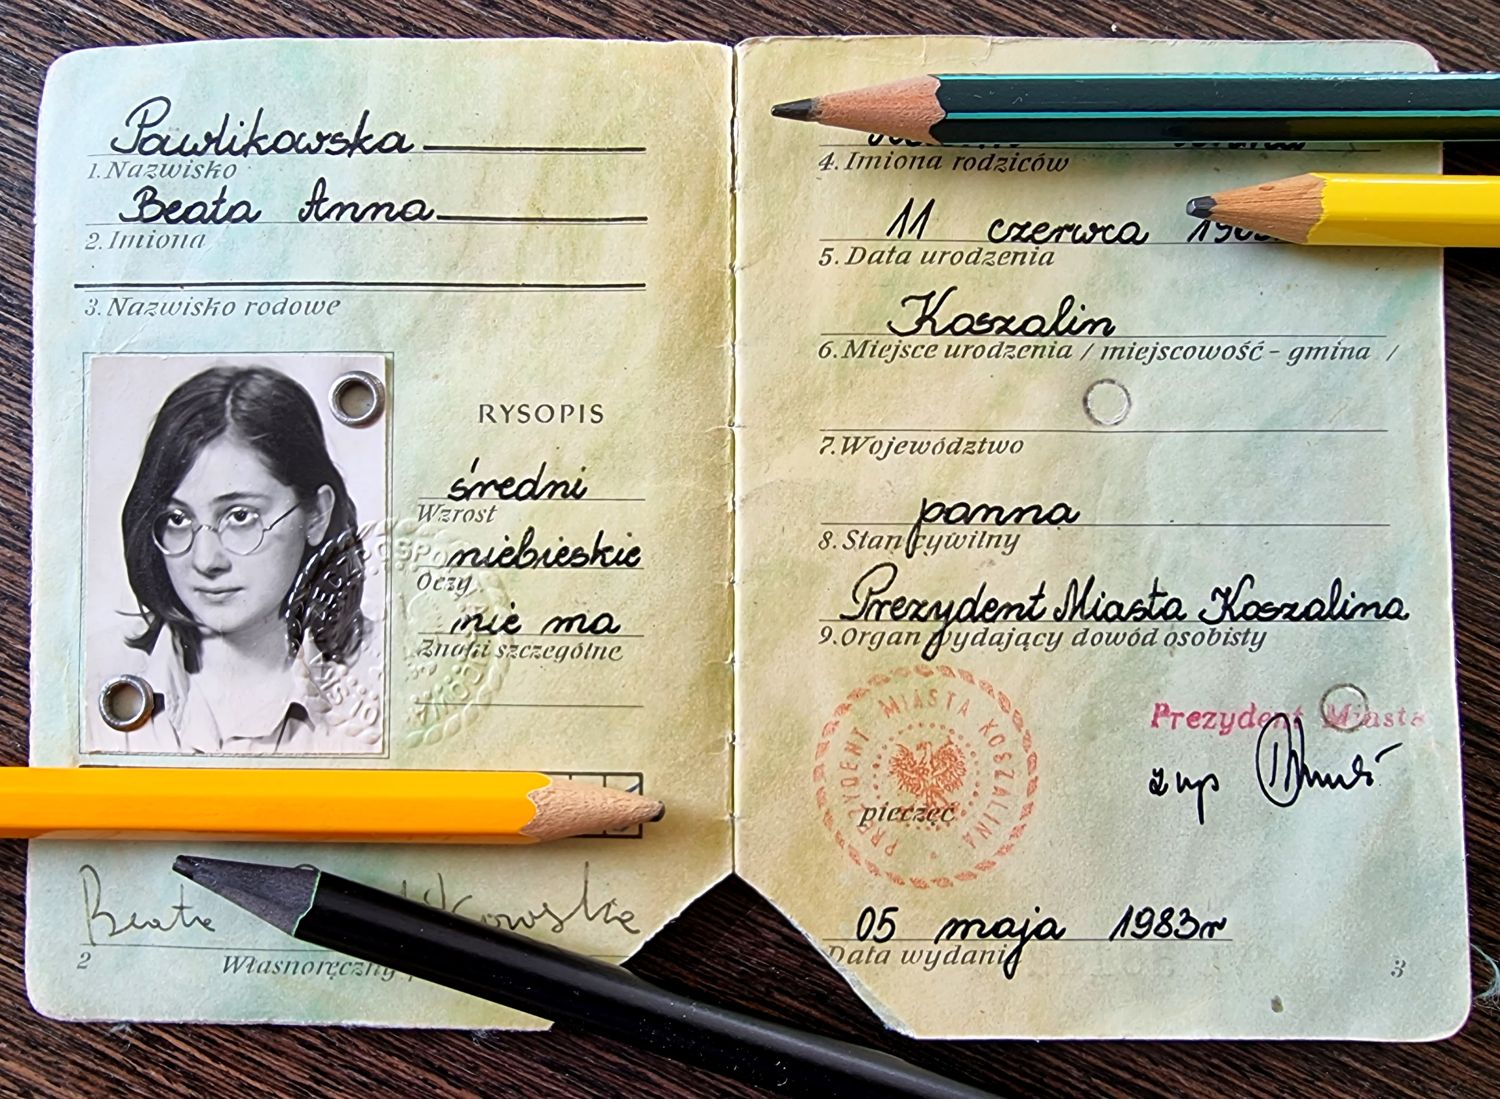 Pawlikowska
1. Nazwisko
Beata Anna
2. Imiona
3. Nazwisko rodowe
RYSOPIS
średni
Wzrost
niebieskie
Oczy
nie ma
Znaki szczególne
Beata
2
Własnoręczny
4. Imiona rodziców
11 czerwca
5. Data urodzenia
Koszalin
6. Miejsce urodzenia / miejscowość - gmina /
7. Województwo
panna
8. Stan cywilny
Prezydent Miasta Koszalina
9. Organ wydający dowód osobisty
PREZYDENT MIASTA KOSZALINA
Prezydent Miasta
pieczęć
z up
05 maja 1983r
Data wydania
3